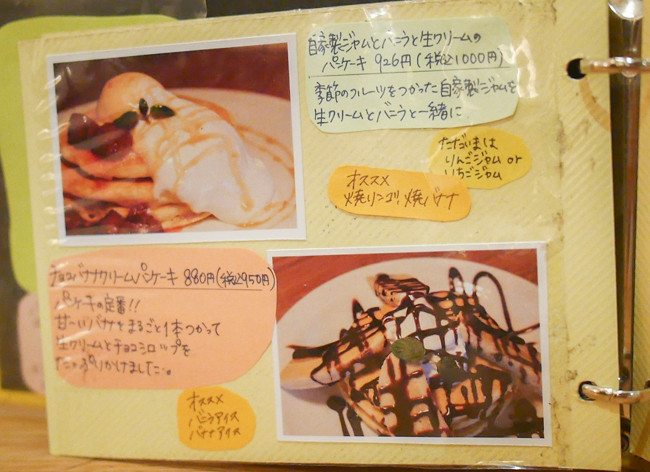 自家製ジャムとバニラと生クリームの
パンケーキ 926円(税込1000円)
季節のフルーツをつかった自家製ジャムを
生クリームとバニラと一緒に
ただいまは
りんごジャム or
いちごジャム
オススメ
焼リンゴ! 焼バナナ
チョコバナナクリームパンケーキ 880円(税込950円)
パンケーキの定番!!
甘〜いバナナをまるごと1本つかって
生クリームとチョコシロップを
たっぷりかけました。
オススメ
バニラアイス
バナナアイス